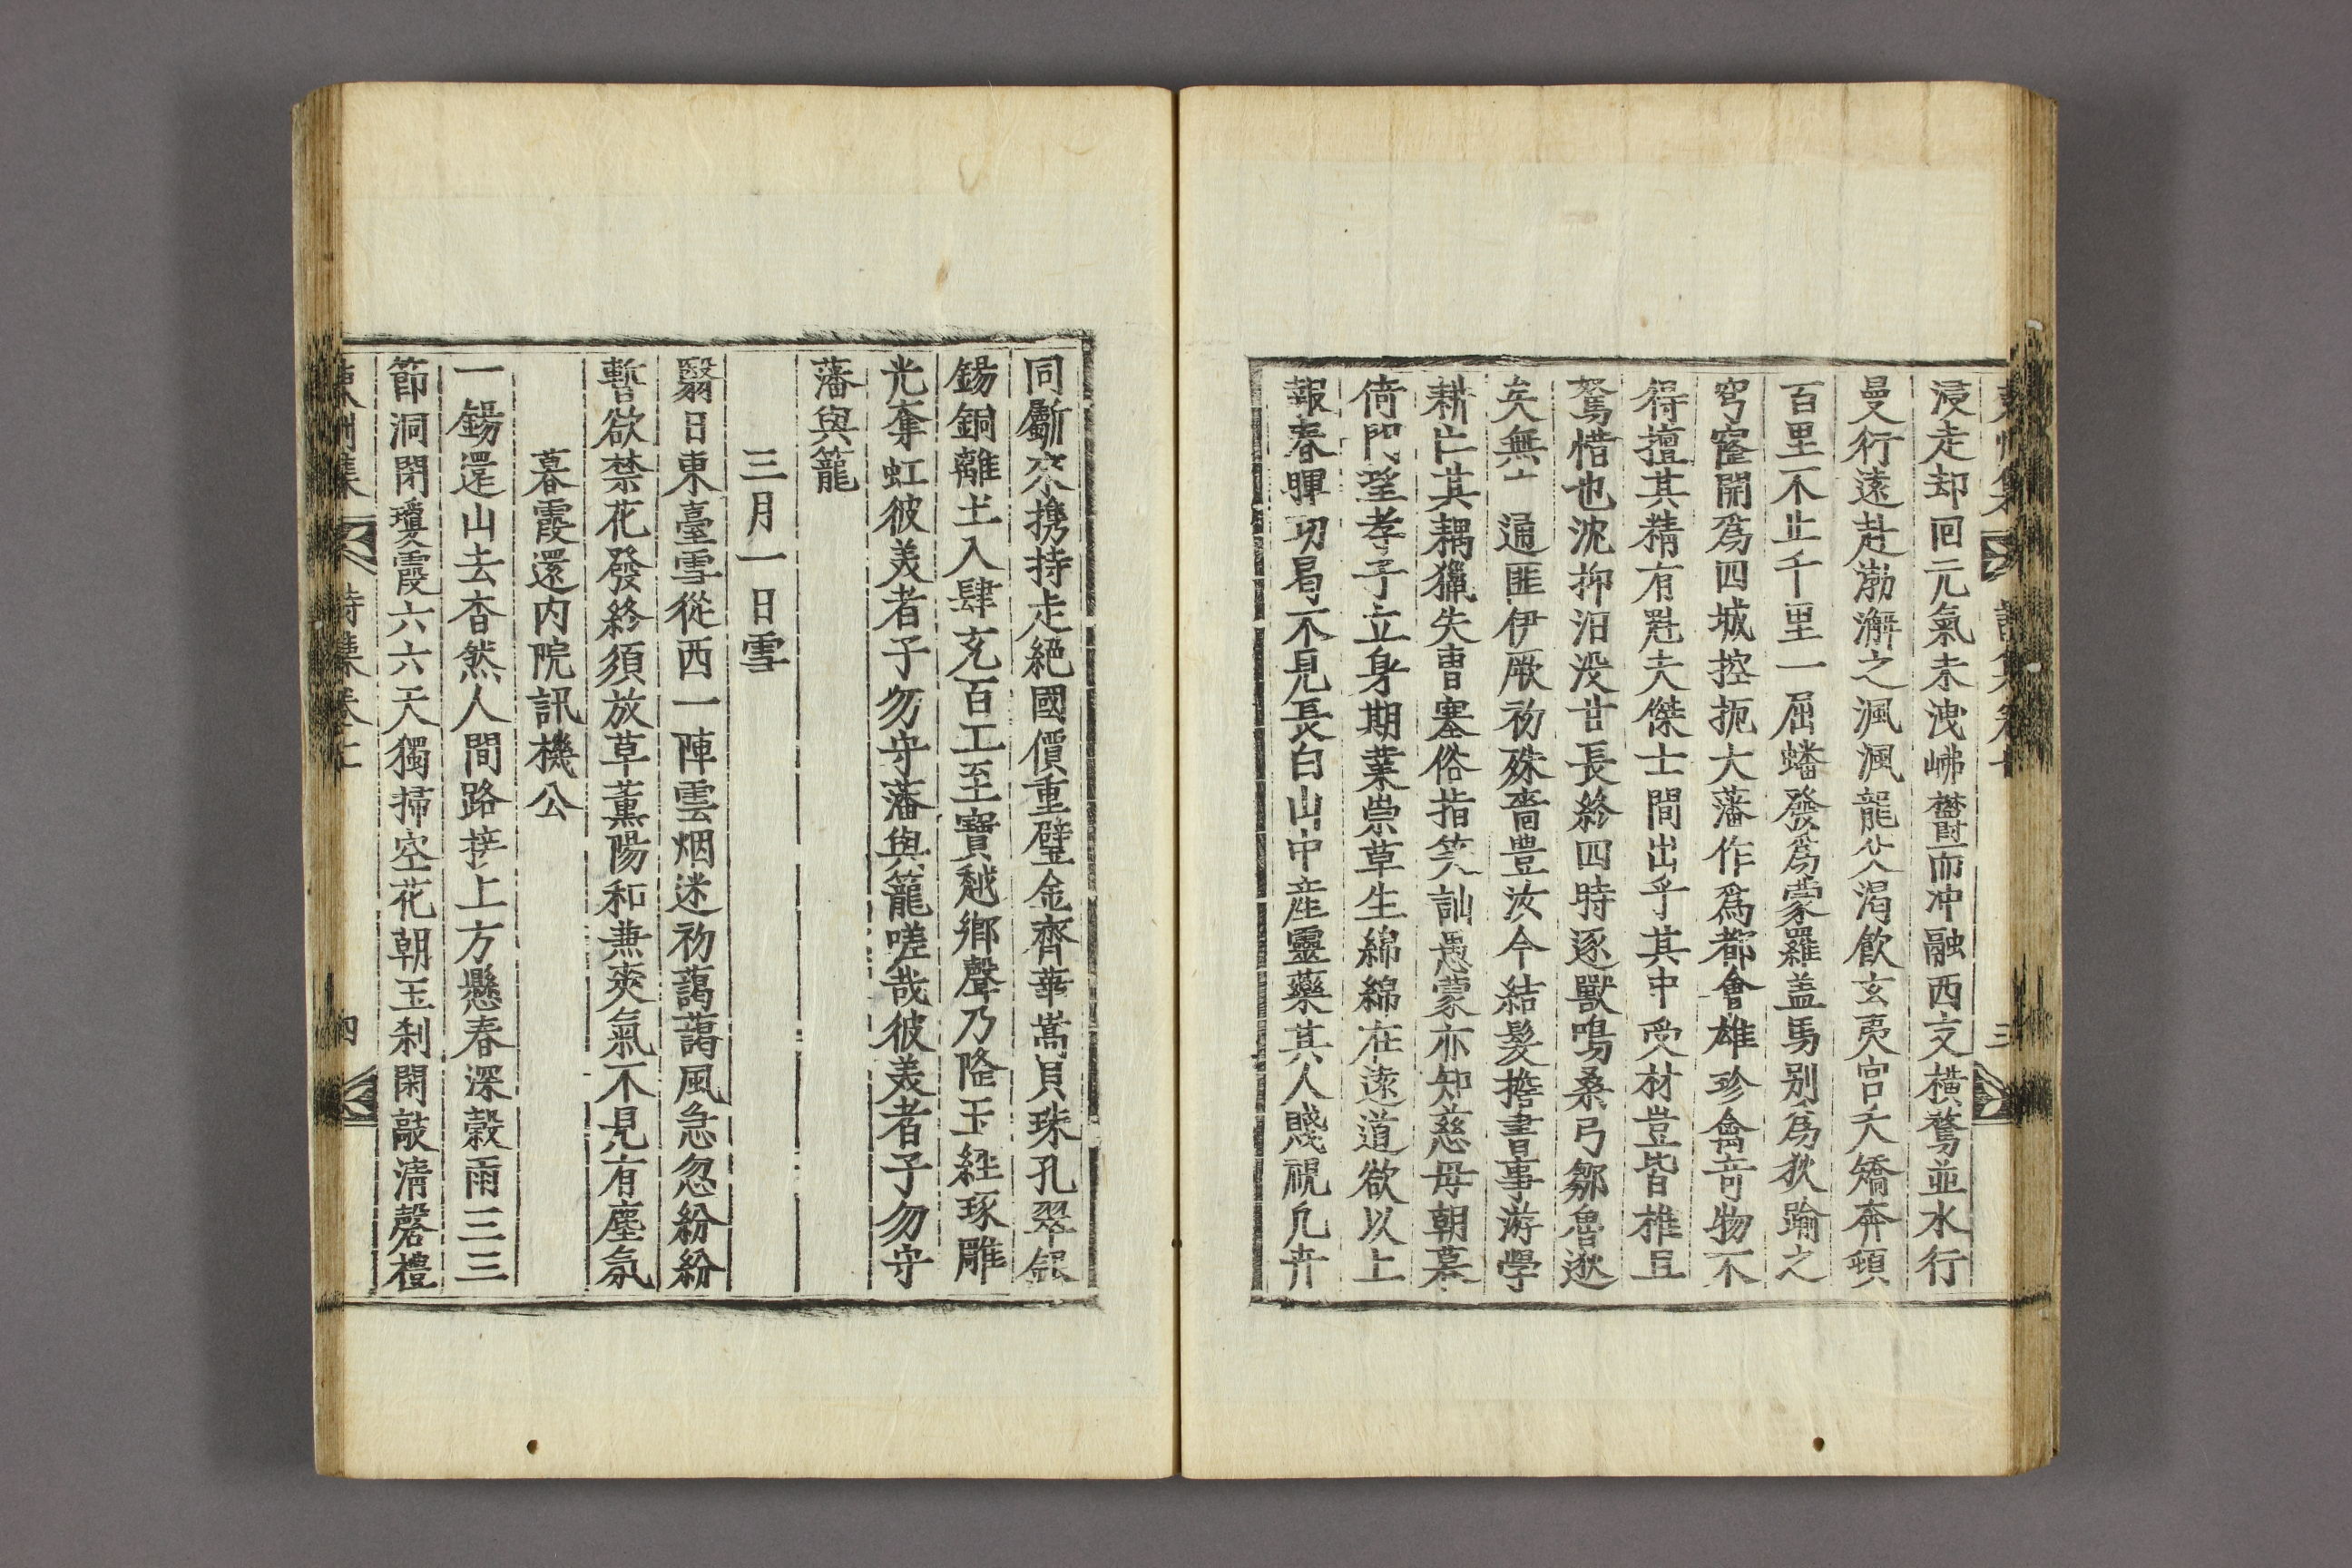 浸走却回元氣未洩岪鬱而冲融西支橫騖並水行
曼行遠赴渤澥之渢渢龍父渴飮玄夷宮夭矯奔頓
百里不止千里一屈蟠發爲蒙羅盖馬别爲狄踰之
穹窿開爲四城控扼大藩作爲都會雄珍禽奇物不
得擅其精有魁夫傑士間出乎其中受材豈皆椎且
駑惜也沈抑汩没甘長終四時逐獸鳴桑弓鄒魯逖
矣無亠通匪伊厥初殊嗇豊汝今結髮擔書事游學
耕亡其耦獵失曹塞俗指笑訕愚蒙亦知慈母朝暮
倚門望孝子立身期業崇草生綿綿在遠道欲以上
報春暉功曷不見長白山中産靈藥其人賤視凡卉
東州集 詩集卷 三
同斸來携持走絕國價重璧金齊華嵩貝珠孔翠銀
錫銅離土入肆充百工至寶越鄉聲乃隆玉經琢雕
光奪虹彼美者子勿守藩與籠嗟哉彼美者子勿守
藩與籠
三月一日雪
翳日東臺雪從西一陣雲烟迷初藹藹風急忽紛紛
暫欲禁花發終須放草薰陽和兼爽氣不見有塵氛
暮霞還内院訊機公
一錫還山去杳然人間路莾上方懸春深穀雨三三
節洞閉瓊霞六六天獨掃空花朝玉刹閑敲清磬禮
東州集 詩集卷 四